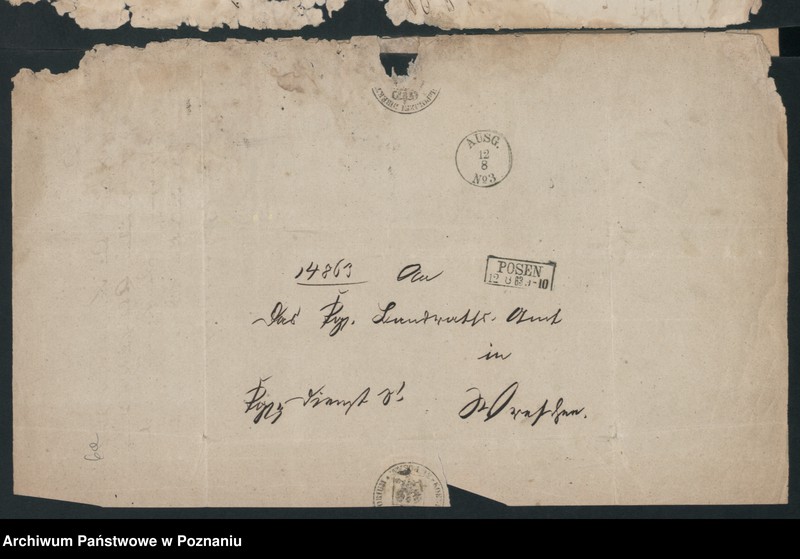 AUSG.
12
8
No 3
14863 An
POSEN
12 8
10
Das Kgl. Landraths-Amt
in
Wreschen.
6a
Archiwum Państwowe w Poznaniu